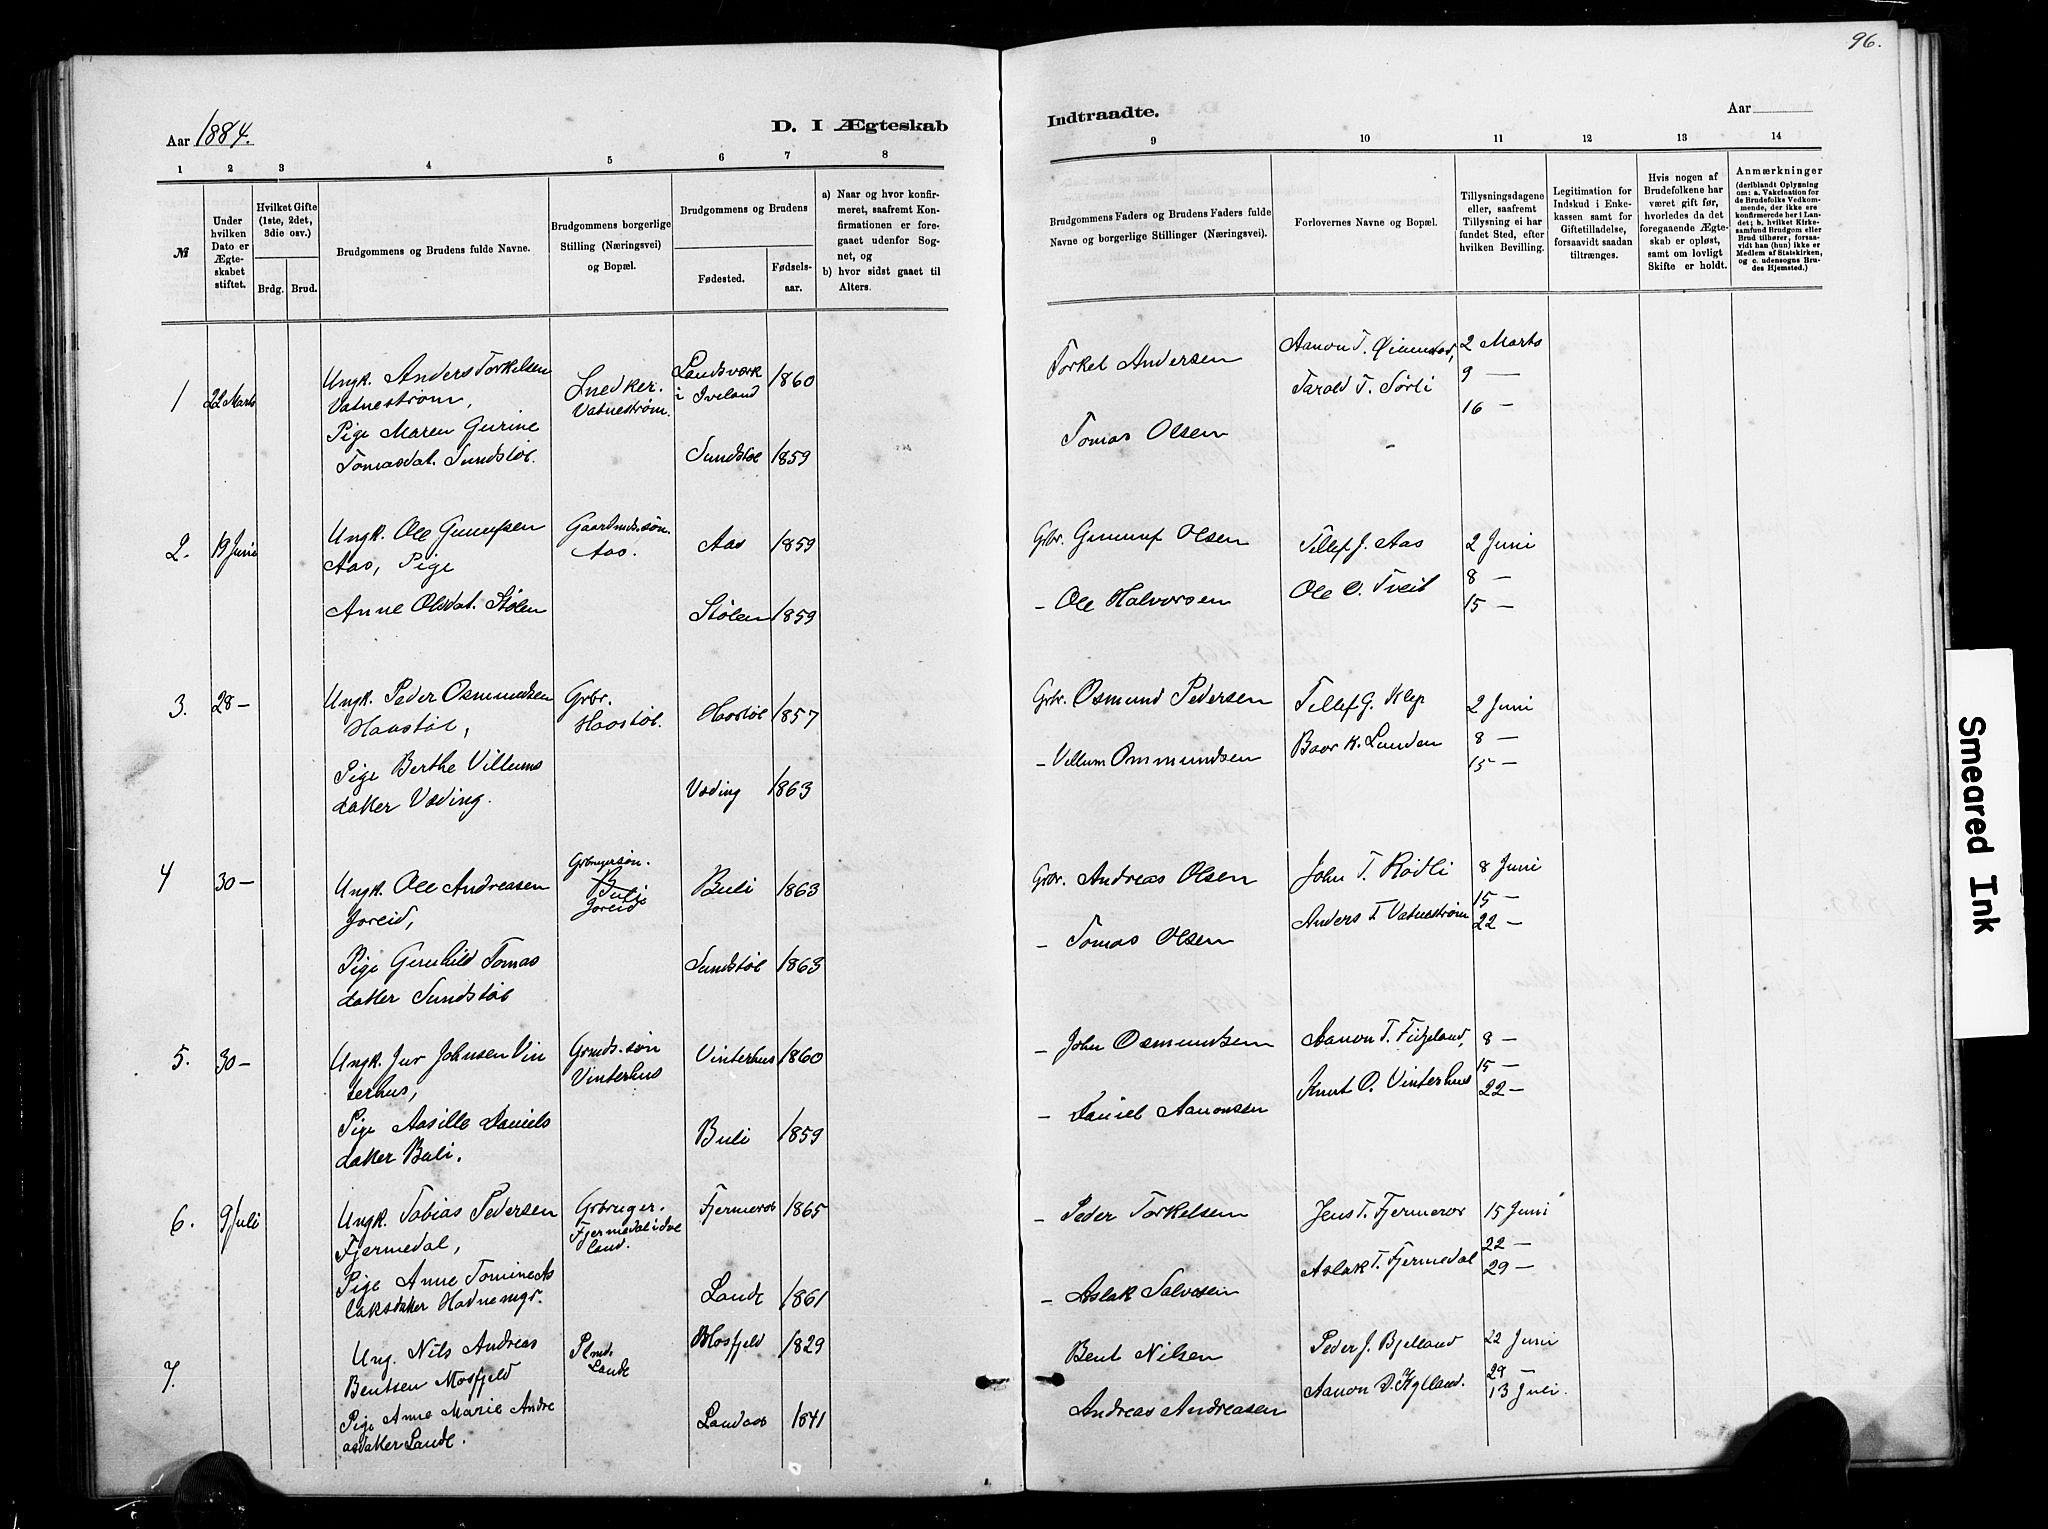 96.
Aar 1884.
D. I Ægteskab
Indtraadte.
Aar
1 2 3 4 5 6 7 8
9 10 11 12 13 14
№
Under hvilken Dato er Ægteskabet stiftet.
Hvilket Gifte (1ste, 2det, 3die osv.)
Brdg. Brud.
Brudgommens og Brudens fulde Navne.
Brudgommens borgerlige Stilling (Næringsvei) og Bopæl.
Brudgommens og Brudens
Fødested.
Fødselsaar.
a) Naar og hvor konfirmeret, saafremt Konfirmationen er foregaaet udenfor Sognet, og
b) hvor sidst gaaet til Alters.
Brudgommens Faders og Brudens Faders fulde Navne og borgerlige Stillinger (Næringsvei).
Forlovernes Navne og Bopæl.
Tillysningsdagene eller, saafremt Tillysning ei har fundet Sted, efter hvilken Bevilling.
Legitimation for Indskud i Enkekassen samt for Giftetilladelse, forsaavidt saadan tiltrænges.
Hvis nogen af Brudefolkene har været gift før, hvorledes da det foregaaende Ægteskab er opløst, samt om lovligt Skifte er holdt.
Anmærkninger
(deriblandt Oplysning om: a. Vakcination for de Brudefolks Vedkommende, der ikke ere konfirmerede her i Landet; b. hvilket Kirkesamfund Brudgom eller Brud tilhører, forsaavidt han (hun) ikke er Medlem af Statskirken, og c. udensogns Brudes Hjemsted.)
1 22 Marts
Ungk. Anders Torkelsen
Vatnestrøm,
Pige Maren Gurine
Tomasdat. Sundstøl.
Snedker.
Vatnestrøm.
Landsverk
i Iveland 1860
Sundstøl 1859
Torkel Andersen
Tomas Olsen
Aanon T.
Tarald T. Sørli
-
2 Marts
9 —
16 —
2. 19 Juni
Ungk. Ole Gunufsen
Aas, Pige
Anne Olsdat. Stølen
Gaardmds.søn.
Aas.
Aas 1859
Stølen 1859
Grbr. Gunuf Olsen
- Ole Halvorsen
Tellef J. Aas
Ole O. Tveit
2 Juni
8 —
15 —
3. 28 —
Ungk. Peder Osmundsen
Haastøl,
Pige Berthe Villums
datter Væding.
Grbr.
Haastøl.
Haastøl 1857
Væding 1863
Grbr. Osmund Pedersen
- Villum Ommundsen
Tellef G. Klep
Baar K. Lunden
2 Juni
8 —
15 —
4 30 —
Ungk. Ole Andreasen
Joreid,
Pige Gunhild Tomas
datter Sundstøl
Grbrugersøn.
Buli
Joreid
Buli 1863
Sundstøl 1863
Grbr. Andreas Olsen
- Tomas Olsen
John T. Rødli
Anders T Vatnestrøm
8 Juni
15 —
22 —
5. 30 —
Ungk. Juv Johnsen Vin
terhus,
Pige Aasille Daniels
datter Buli.
Grmds.søn
Vinterhus
Vinterhus 1860
Buli 1859
- John Osmundsen
- Daniel Aanonsen
Aanon T. Fidjeland,
Knut O. Vinterhus
8 —
15 —
22 —
6. 9 Juli
Ungk. Tobias Pedersen
Fjermedal,
Pige Anne Tomine As
laksdatter Hodnemyr.
Grbruger.
Fjermedal i Eve
land.
Fjermeros 1865
Lande 1861
- Peder Torkelsen
- Aslak Salvesen
Jens T. Fjermeros
Aslak T. Fjermedal
15 Juni
22 —
29 —
7.
Ung. Nils Andreas
Bentsen Mosfjeld
Pige Anne Marie Andre
asdatter Lande.
Plmd.
Lande
Mosfjeld 1829
Landaas 1841
Bent Nilsen
Andreas Andreasen
Peder J. Bjelland
Aanon D. Kylland.
22 Juni
29 —
13 Juli.
Smeared Ink